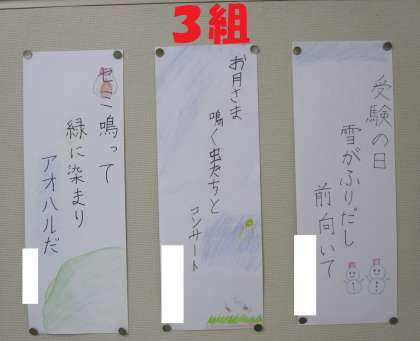 3組
受験の日
雪がふりだし
前向いて
お月さま
鳴く虫たちと
コンサート
セミ鳴って
緑に染まり
アオハルだ